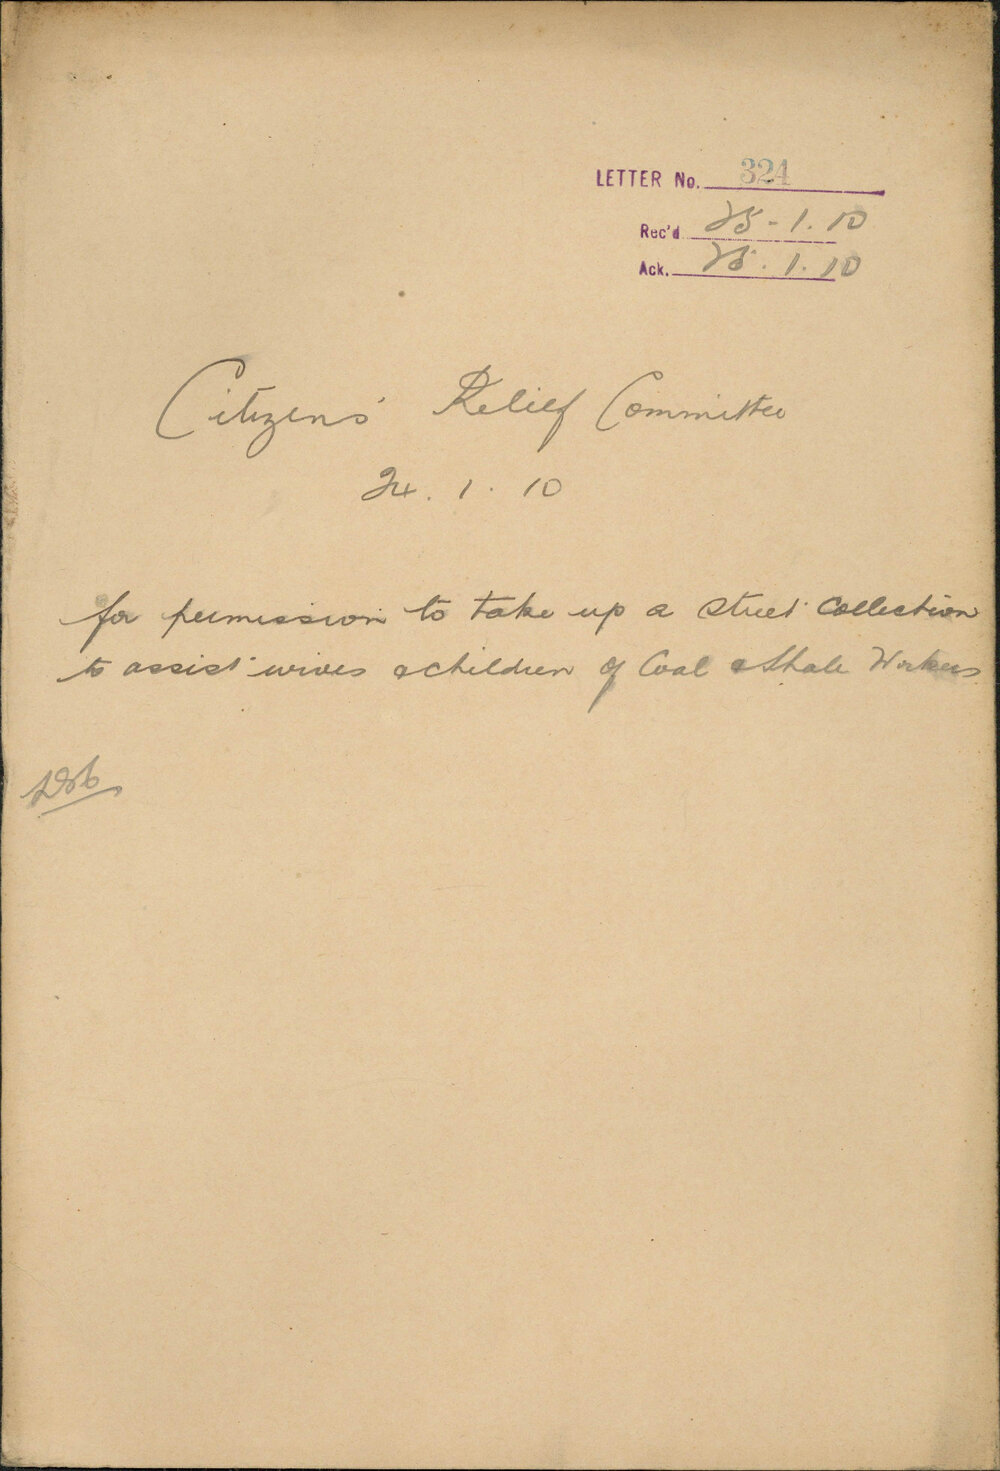 LETTER No. 324
Rec'd 25-1.10
Ack. 25.1.10
Citizens' Relief Committee
24.1.10
for permission to take up a street collection
to assist wives & children of Coal & Shale Workers